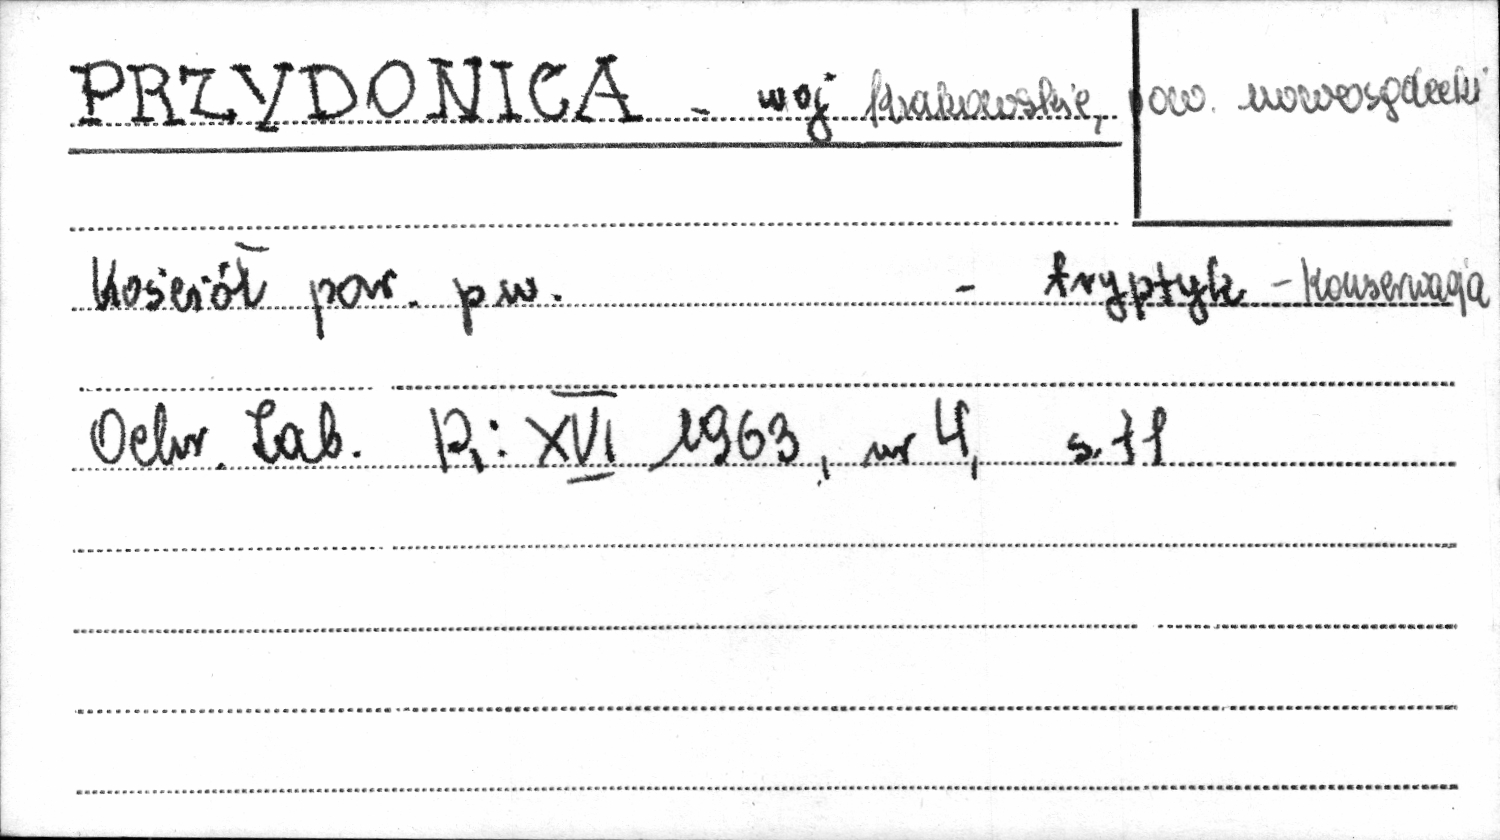 PRZYDONICA - woj krakowskie, pow. nowosądecki
Kościół par. pw. - tryptyk - konserwacja
Ochr. Zab. R: XVI 1963, nr 4, s. 71